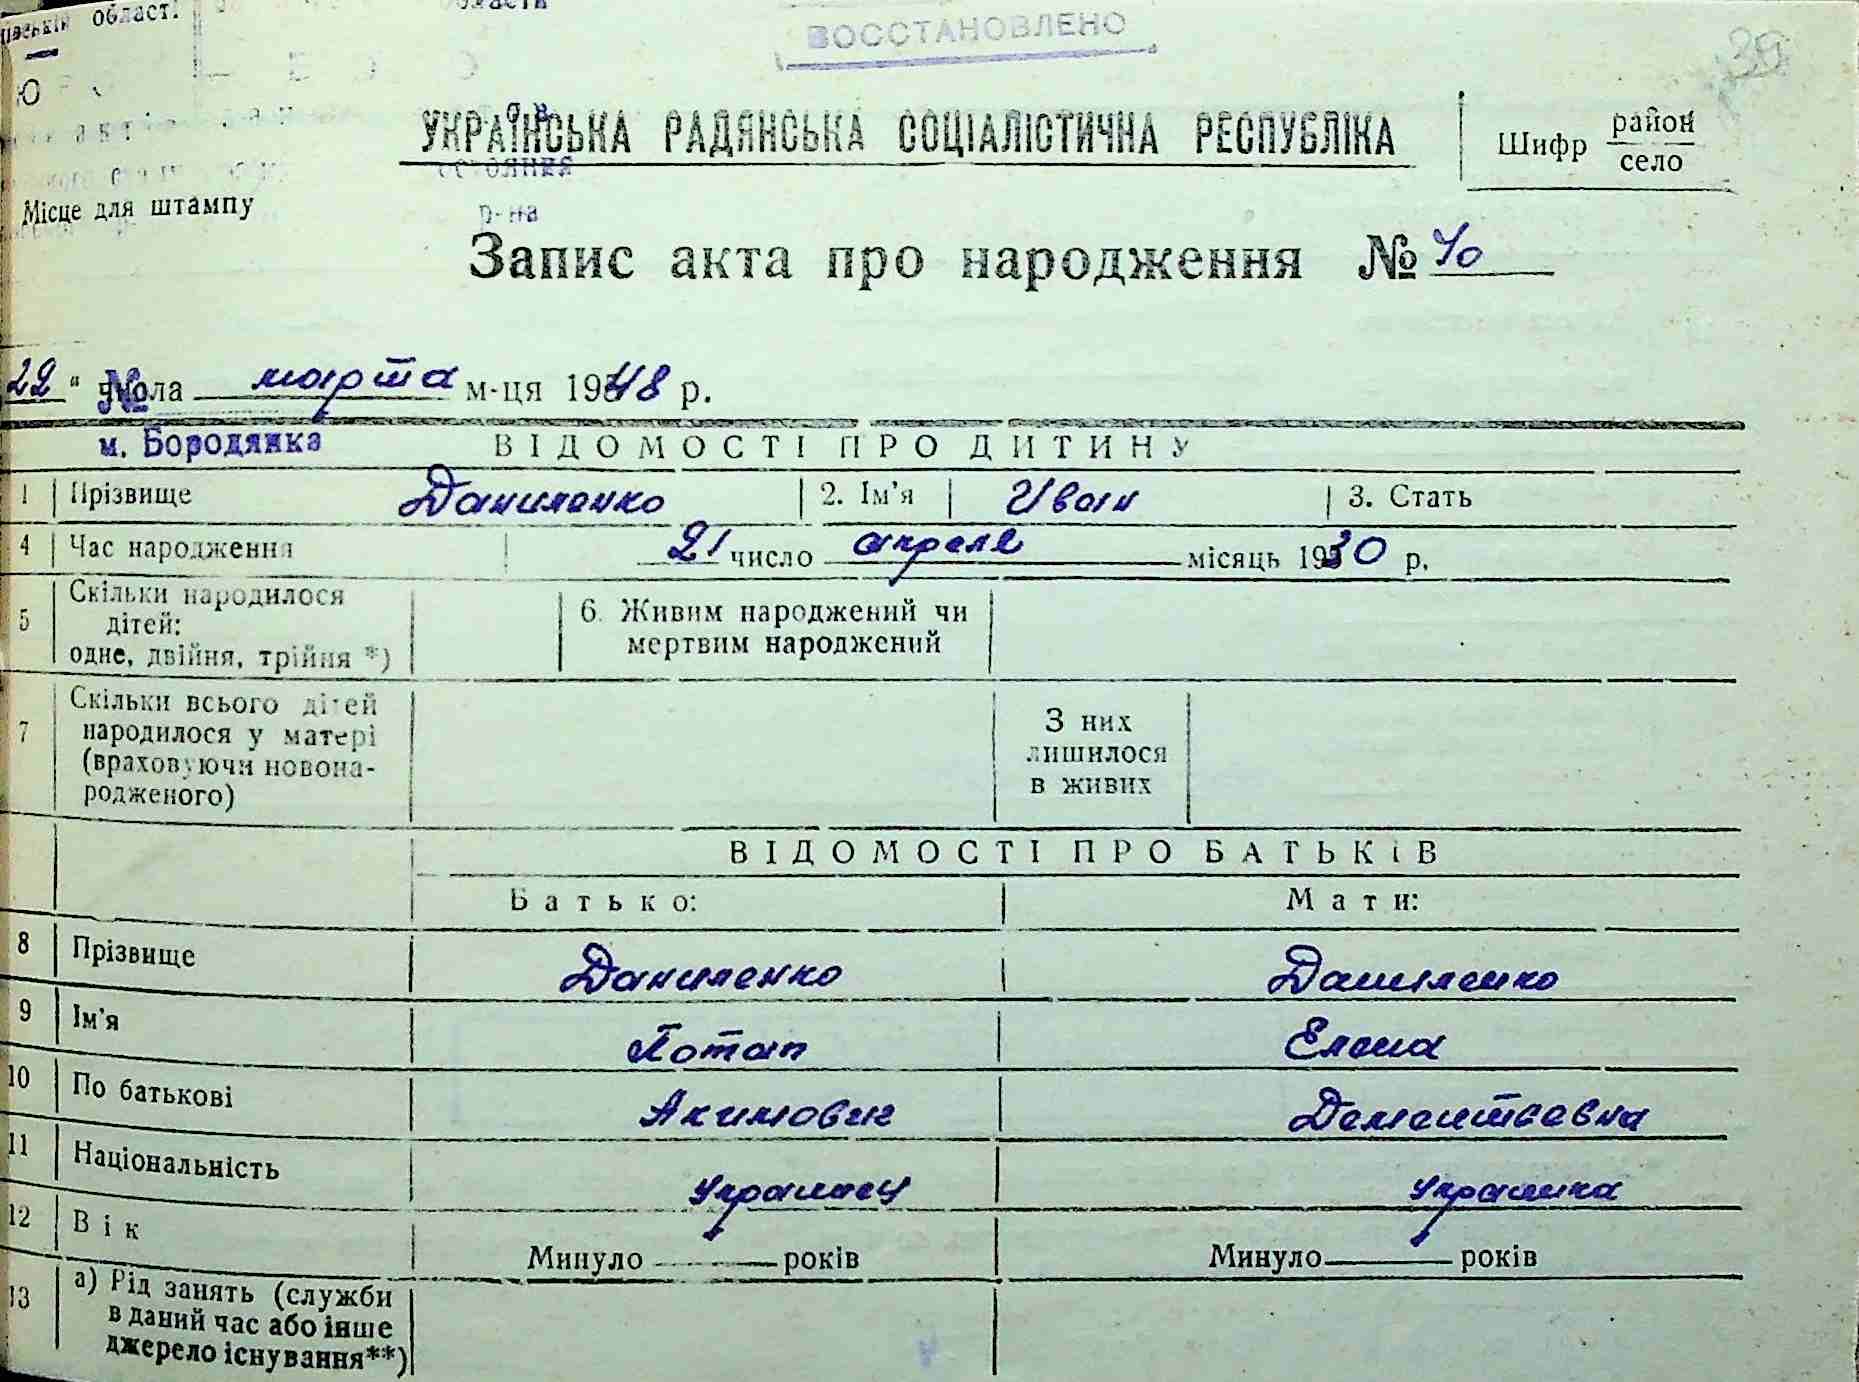 област.
ВОССТАНОВЛЕНО
39
УКРАЇНСЬКА РАДЯНСЬКА СОЦІАЛІСТИЧНА РЕСПУБЛІКА
Шифр район
село
Місце для штампу
р-на
Запис акта про народження № 40
22 " числа марта м-ця 1948 р.
№
м. Бородянка
ВІДОМОСТІ ПРО ДИТИНУ
1 Прізвище Даниленко 2. Ім'я Иван 3. Стать
4 Час народження 21 число апреля місяць 1930 р.
5 Скільки народилося
дітей:
одне, двійня, трійня *)
6. Живим народжений чи
мертвим народжений
7 Скільки всього дітей
народилося у матері
(враховуючи новона-
родженого)
З них
лишилося
в живих
ВІДОМОСТІ ПРО БАТЬКІВ
Батько: Мати:
8 Прізвище Даниленко Даниленко
9 Ім'я Потап Елена
10 По батькові Акимович Дементьевна
11 Національність Украинец Украинка
12 Вік Минуло років Минуло років
13 а) Рід занять (служби
в даний час або інше
джерело існування**)